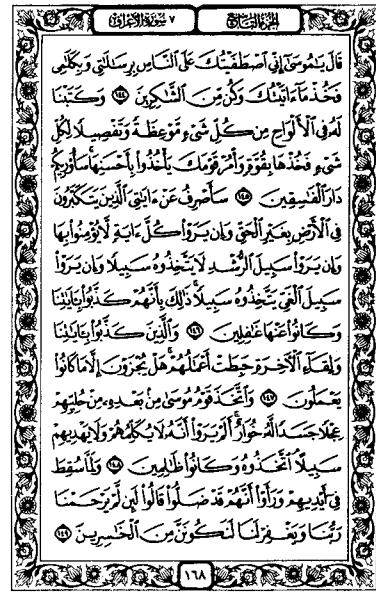 الجزء التاسع
٧ سورة الأعراف
قَالَ يَٰمُوسَىٰٓ إِنِّى ٱصْطَفَيْتُكَ عَلَى ٱلنَّاسِ بِرِسَٰلَٰتِى وَبِكَلَٰمِى
فَخُذْ مَآ ءَاتَيْتُكَ وَكُن مِّنَ ٱلشَّٰكِرِينَ ١٤٤ وَكَتَبْنَا
لَهُۥ فِى ٱلْأَلْوَاحِ مِن كُلِّ شَىْءٍ مَّوْعِظَةً وَتَفْصِيلًا لِّكُلِّ
شَىْءٍ فَخُذْهَا بِقُوَّةٍ وَأْمُرْ قَوْمَكَ يَأْخُذُوا۟ بِأَحْسَنِهَا سَأُو۟رِيكُمْ
دَارَ ٱلْفَٰسِقِينَ ١٤٥ سَأَصْرِفُ عَنْ ءَايَٰتِىَ ٱلَّذِينَ يَتَكَبَّرُونَ
فِى ٱلْأَرْضِ بِغَيْرِ ٱلْحَقِّ وَإِن يَرَوْا۟ كُلَّ ءَايَةٍ لَّا يُؤْمِنُوا۟ بِهَا
وَإِن يَرَوْا۟ سَبِيلَ ٱلرُّشْدِ لَا يَتَّخِذُوهُ سَبِيلًا وَإِن يَرَوْا۟
سَبِيلَ ٱلْغَىِّ يَتَّخِذُوهُ سَبِيلًا ذَٰلِكَ بِأَنَّهُمْ كَذَّبُوا۟ بِـَٔايَٰتِنَا
وَكَانُوا۟ عَنْهَا غَٰفِلِينَ ١٤٦ وَٱلَّذِينَ كَذَّبُوا۟ بِـَٔايَٰتِنَا
وَلِقَآءِ ٱلْـَٔاخِرَةِ حَبِطَتْ أَعْمَٰلُهُمْ هَلْ يُجْزَوْنَ إِلَّا مَا كَانُوا۟
يَعْمَلُونَ ١٤٧ وَٱتَّخَذَ قَوْمُ مُوسَىٰ مِنۢ بَعْدِهِۦ مِنْ حُلِيِّهِمْ
عِجْلًا جَسَدًا لَّهُۥ خُوَارٌ أَلَمْ يَرَوْا۟ أَنَّهُۥ لَا يُكَلِّمُهُمْ وَلَا يَهْدِيهِمْ
سَبِيلًا ٱتَّخَذُوهُ وَكَانُوا۟ ظَٰلِمِينَ ١٤٨ وَلَمَّا سُقِطَ
فِىٓ أَيْدِيهِمْ وَرَأَوْا۟ أَنَّهُمْ قَدْ ضَلُّوا۟ قَالُوا۟ لَئِن لَّمْ يَرْحَمْنَا
رَبُّنَا وَيَغْفِرْ لَنَا لَنَكُونَنَّ مِنَ ٱلْخَٰسِرِينَ ١٤٩
١٦٨